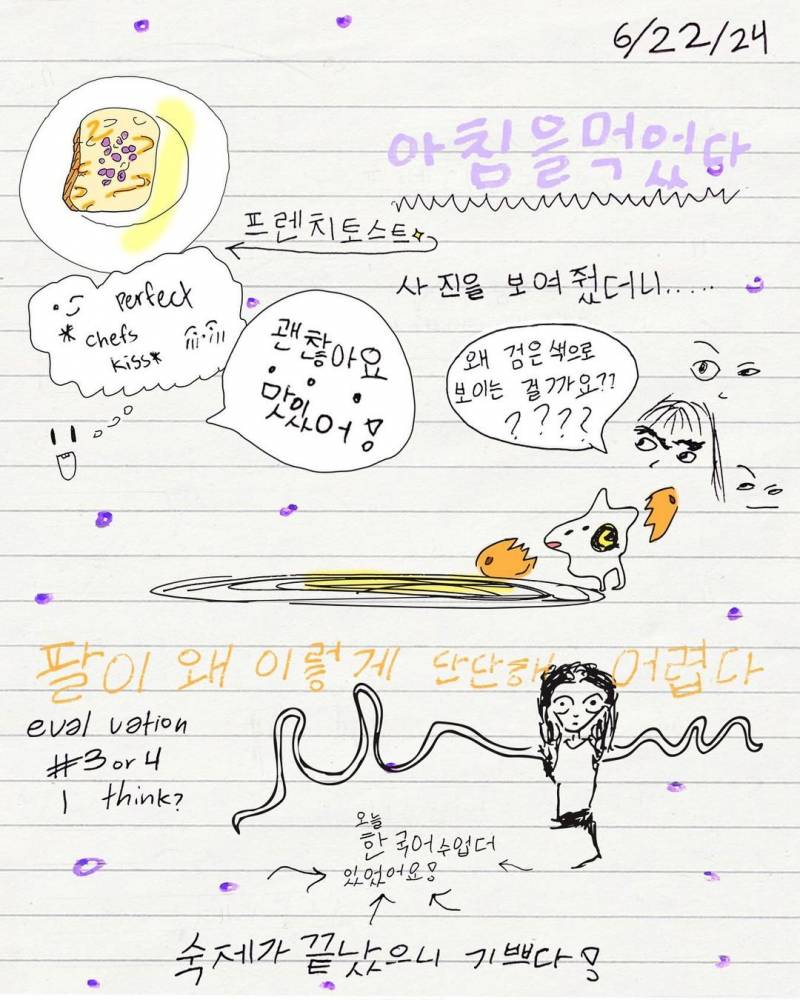 6/22/24
아침을먹었다
프렌치토스트
사진을 보여줬더니.....
perfect
*chefs
kiss*
괜찮아요
맛있어!
왜 검은색으로
보이는 걸까요??
????
팔이 왜 이렇게 단단해 어렵다
evaluation
#3 or 4
I think?
오늘
한국어수업더
있었어요!
숙제가 끝났으니 기쁘다!